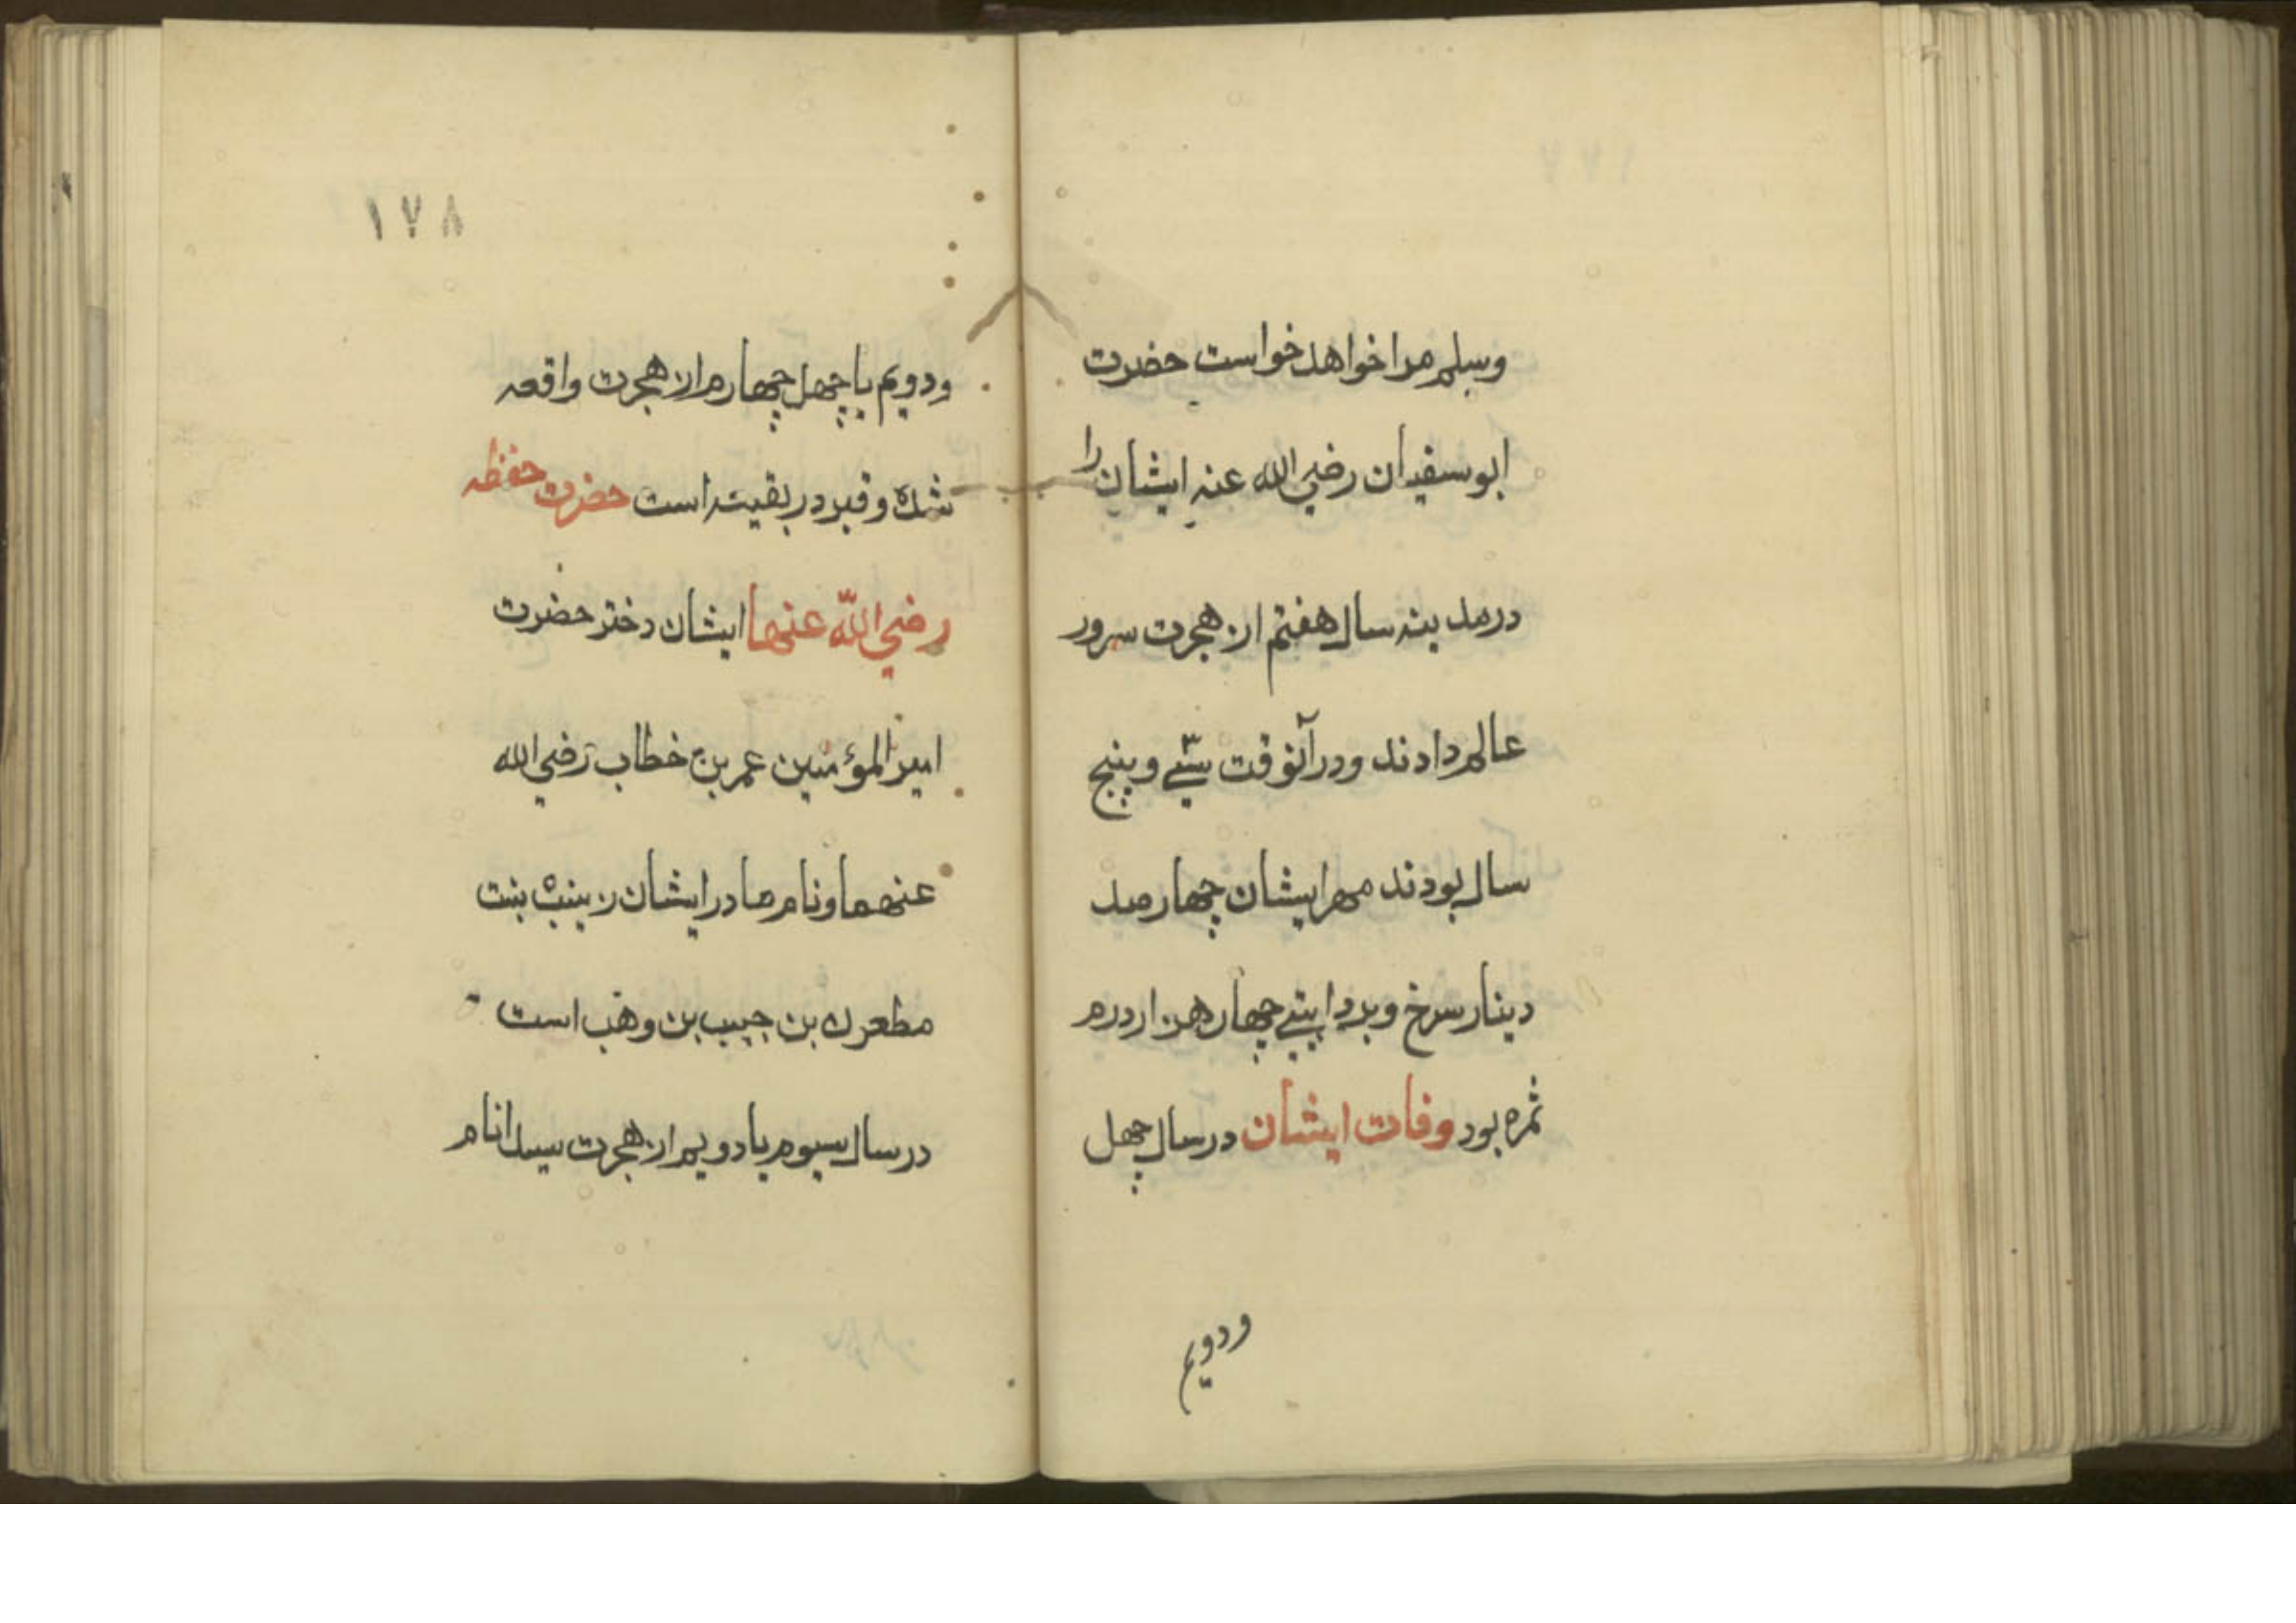 وسلم مرا خواهد خواست حضرت
ابوسفیان رضي الله عنه ایشان را
درمدینه سال هفتم از هجرت سرور
عالم دادند ودرآنوقت سیّے وپنج
سال بودند مهر ایشان چهار صد
دینار سرخ وبردایتے چهار هزار درم
ثمره بود وفات ایشان درسال چهل
ودویم
١٧٨
ودویم یا چهل چهارم از هجرت واقعه
شده وقبر در بقیته است حضرت حفظه
رضي اللّه عنها ایشان دختر حضرت
امیرالمؤمنین عمر بن خطاب رضي الله
عنهما ونام مادر ایشان زینب بنت
بن حبیب بن وهب است
درسال سیوم یا دویم از هجرت سیدانام